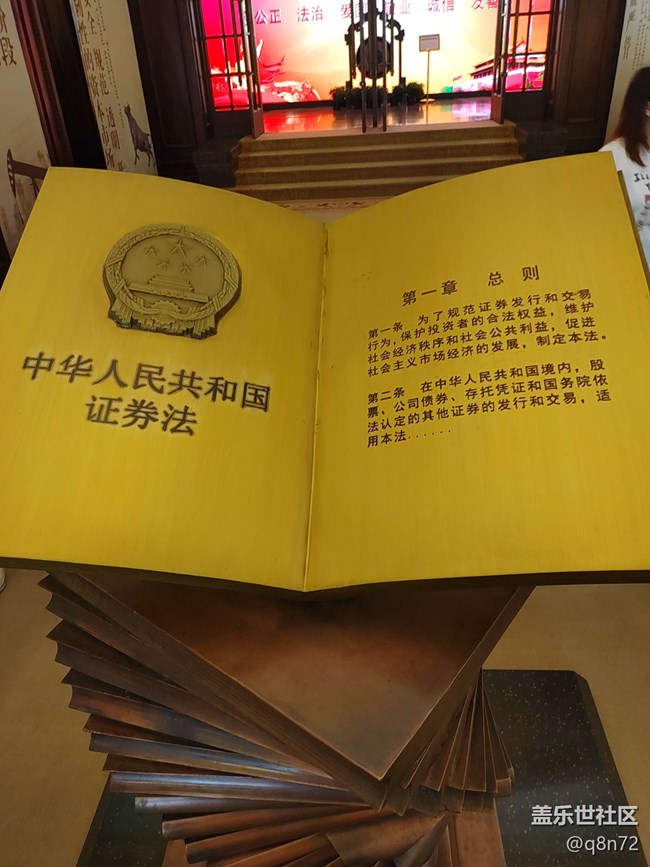 公正 法治 爱
诚信 友善
中华人民共和国
证券法
第一章 总则
第一条 为了规范证券发行和交易
行为，保护投资者的合法权益，维护
社会经济秩序和社会公共利益，促进
社会主义市场经济的发展，制定本法。
第二条 在中华人民共和国境内，股
票、公司债券、存托凭证和国务院依
法认定的其他证券的发行和交易，适
用本法······
盖乐世社区
@q8n72